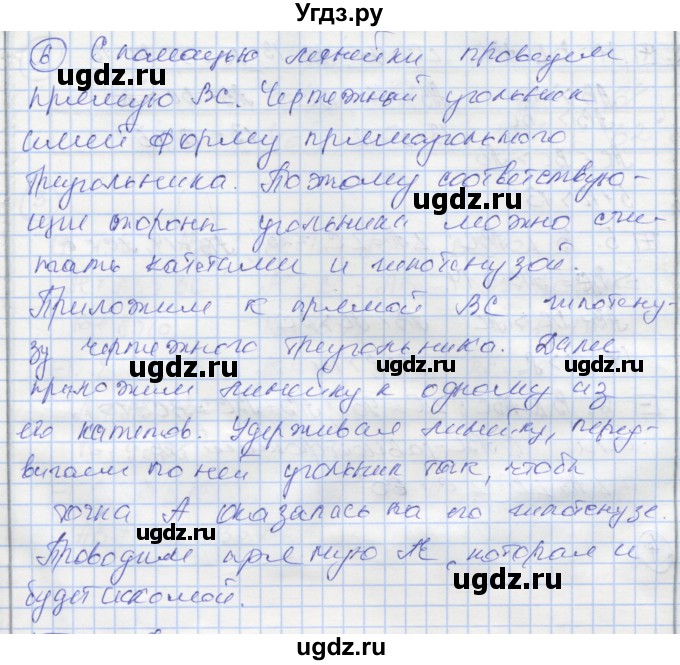 Угдз.ру
6 С помощью линейки проводим
прямую ВС. Чертежный угольник
имей форму прямоугольного
треугольника. Поэтому соответствую-
щи стороны угольника можно счи-
тать катетами и гипотенузой.
Приложим к прямой ВС гипотену-
зу чертежного треугольника. Далее
приложим линейку к одному из
его катетов. Удерживая линейку, перед-
вигаем по ней угольник так, чтобы
точка А оказалась на его гипотенузе.
Проводим прямую АК, которая и
будет искомой.
ugdz.ru
ugdz.ru
ugdz.ru
ugdz.ru
ugdz.ru
ugdz.ru
ugdz.ru
ugdz.ru
ugdz.ru